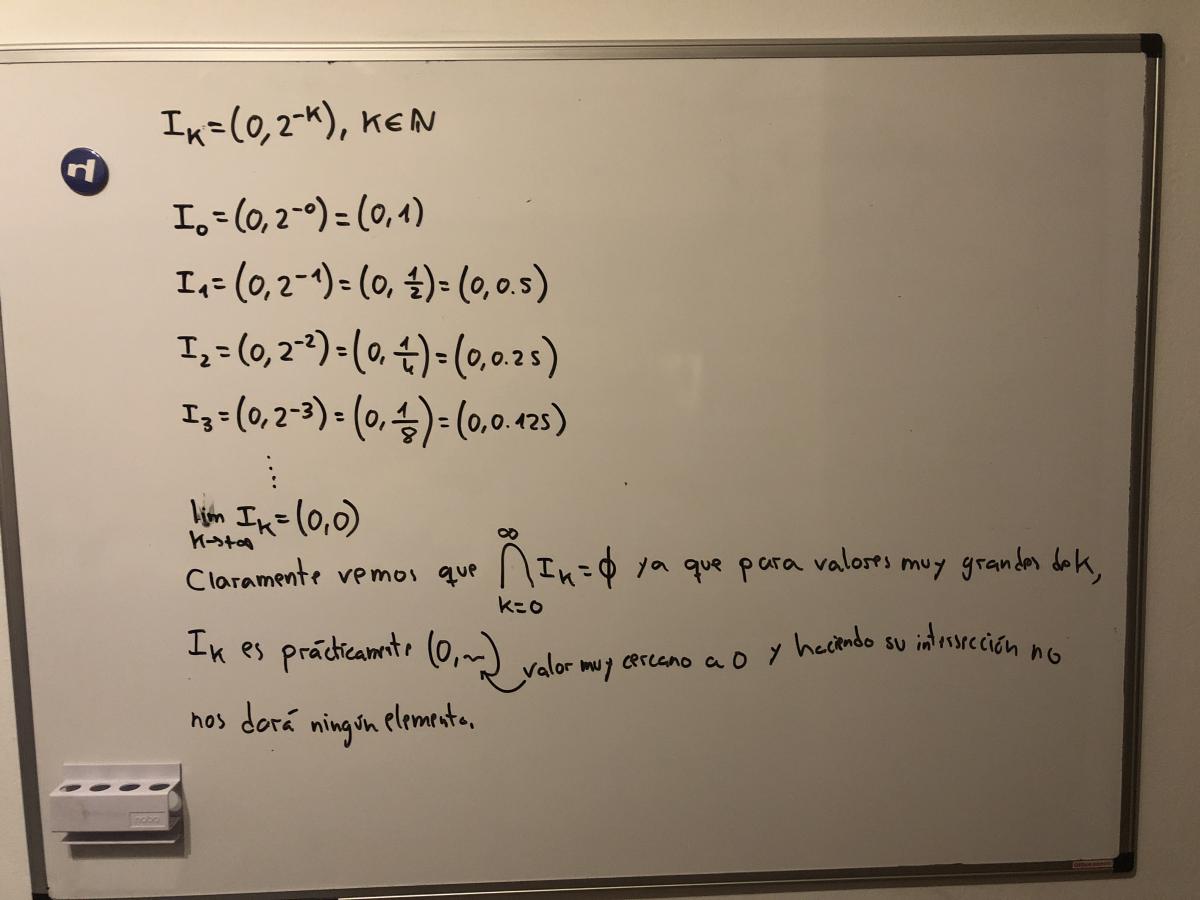 I_K=(0,2^{-K}), K∈ℕ
I_0=(0,2^{-0})=(0,1)
I_1=(0,2^{-1})=(0,1/2)=(0,0.5)
I_2=(0,2^{-2})=(0,1/4)=(0,0.25)
I_3=(0,2^{-3})=(0,1/8)=(0,0.125)
⋮
lim_{K→+∞} I_K=(0,0)
Claramente vemos que ⋂_{k=0}^{∞} I_K=ϕ ya que para valores muy grandes de K,
I_K es prácticamente (0,~) valor muy cercano a 0 y haciendo su intersección no
nos dará ningún elemento.
nobo